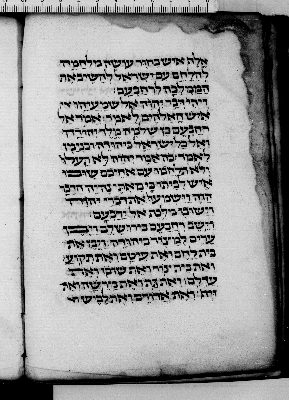 אלף איש בחור עושה מלחמה
להלחם עם ישראל להשיב את
הממלכה לרחבעם:
ויהי דבר יהוה אל שמעיהו
איש האלהים לאמר: אמר אל
רחבעם בן שלמה מלך יהודה
ואל כל ישראל ביהודה ובנימן
לאמר: כה אמר יהוה לא תעלו
ולא תלחמו עם אחיכם שובו
איש לביתו כי מאתי נהיה הדבר
הזה וישמעו את דברי יהוה
וישובו מלכת אל ירבעם:
וישב רחבעם בירושלם ויבן
ערים למצור ביהודה: ויבן את
בית לחם ואת עיטם ואת תקוע:
ואת בית צור ואת שוכו ואת
עדלם: ואת גת ואת מרשה ואת
זיף: ואת אדורים ואת לכיש